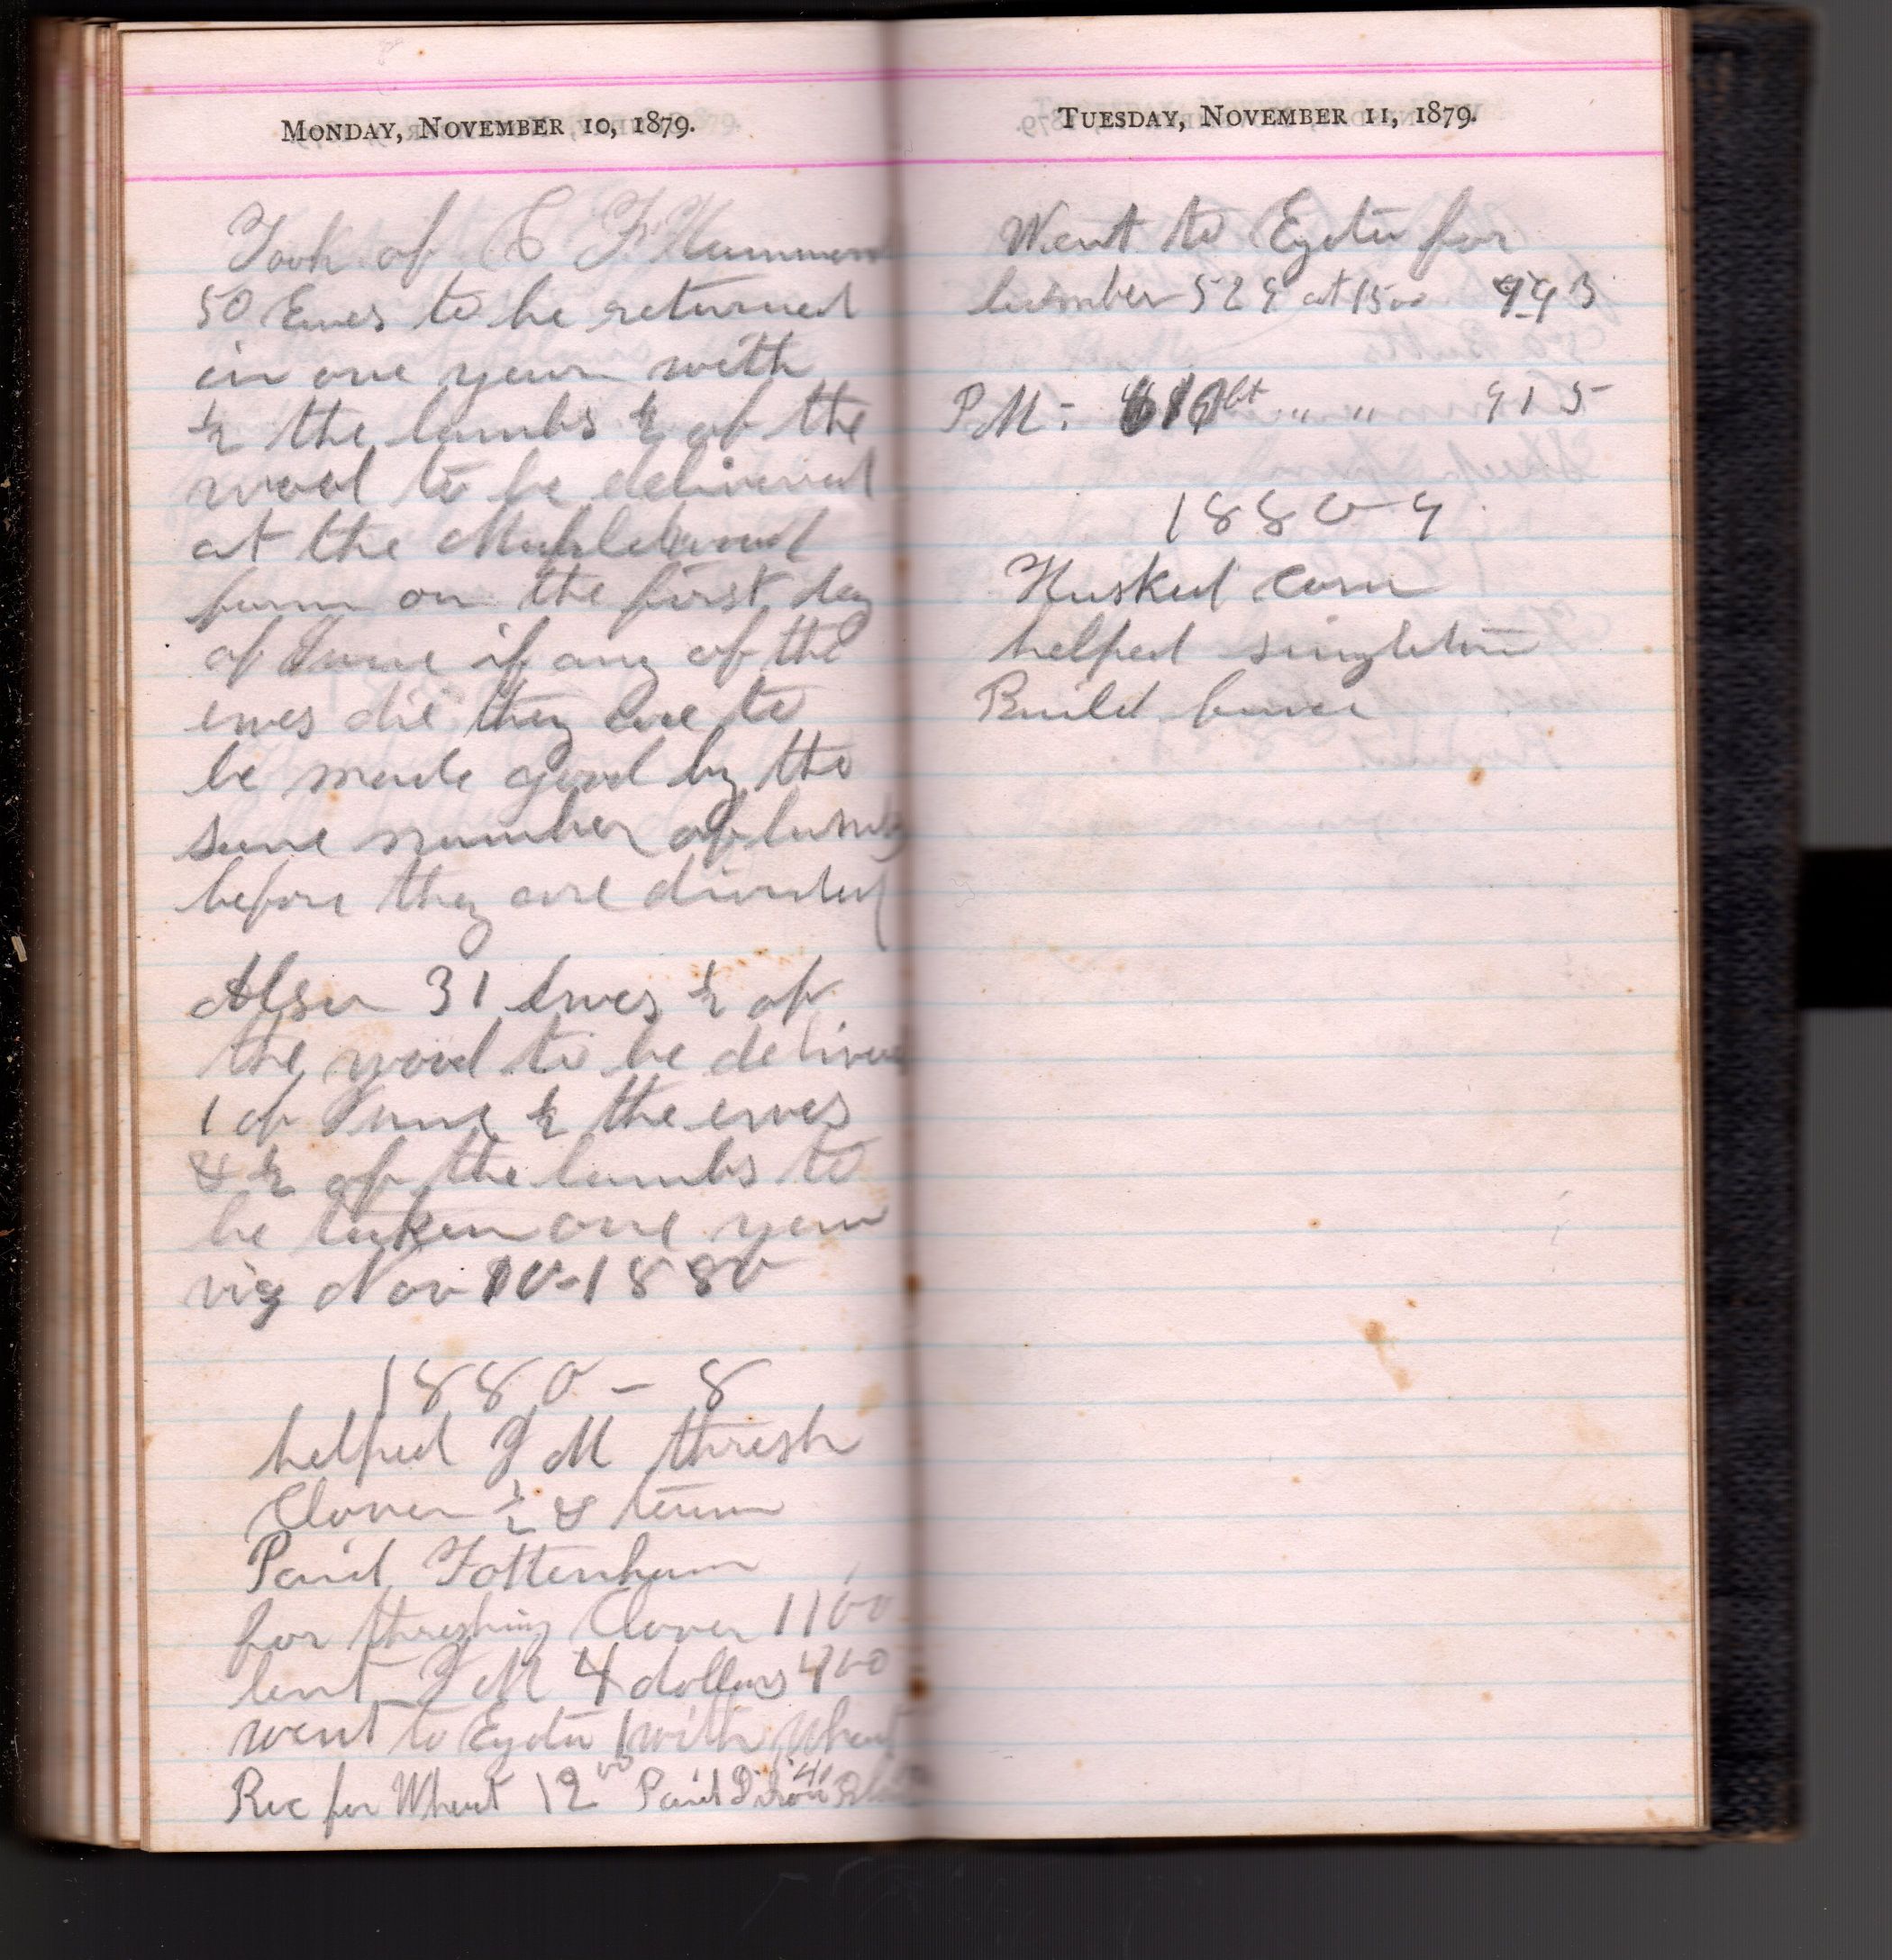 MONDAY, NOVEMBER 10, 1879.
Took of C F Hummer
50 Ewes to be returned
in one year with
½ the lambs ½ of the
wool to be delivered
at the Maplewood
farm on the first day
of June if any of the
ewes die they are to
be made good by the
same number of lambs
before they are divided
Also 31 Ewes ½ of
the wool to be deliver
1 of June ½ the ewes
& ½ of the lambs to
be taken one year
viz Nov 10-1880
1880 - 8
helped J M thresh
Clover ½ & team
Paid Tottenham
for threshing Clover 1100
lent J M 4 dollars 400
went to Exeter with Wheat
Rec for Wheat 12 00 Paid 40
TUESDAY, NOVEMBER 11, 1879.
Went to Exeter for
lumber 529 at 1500
PM: " " 915
1880-9
Husked corn
helped singleton
Build fence